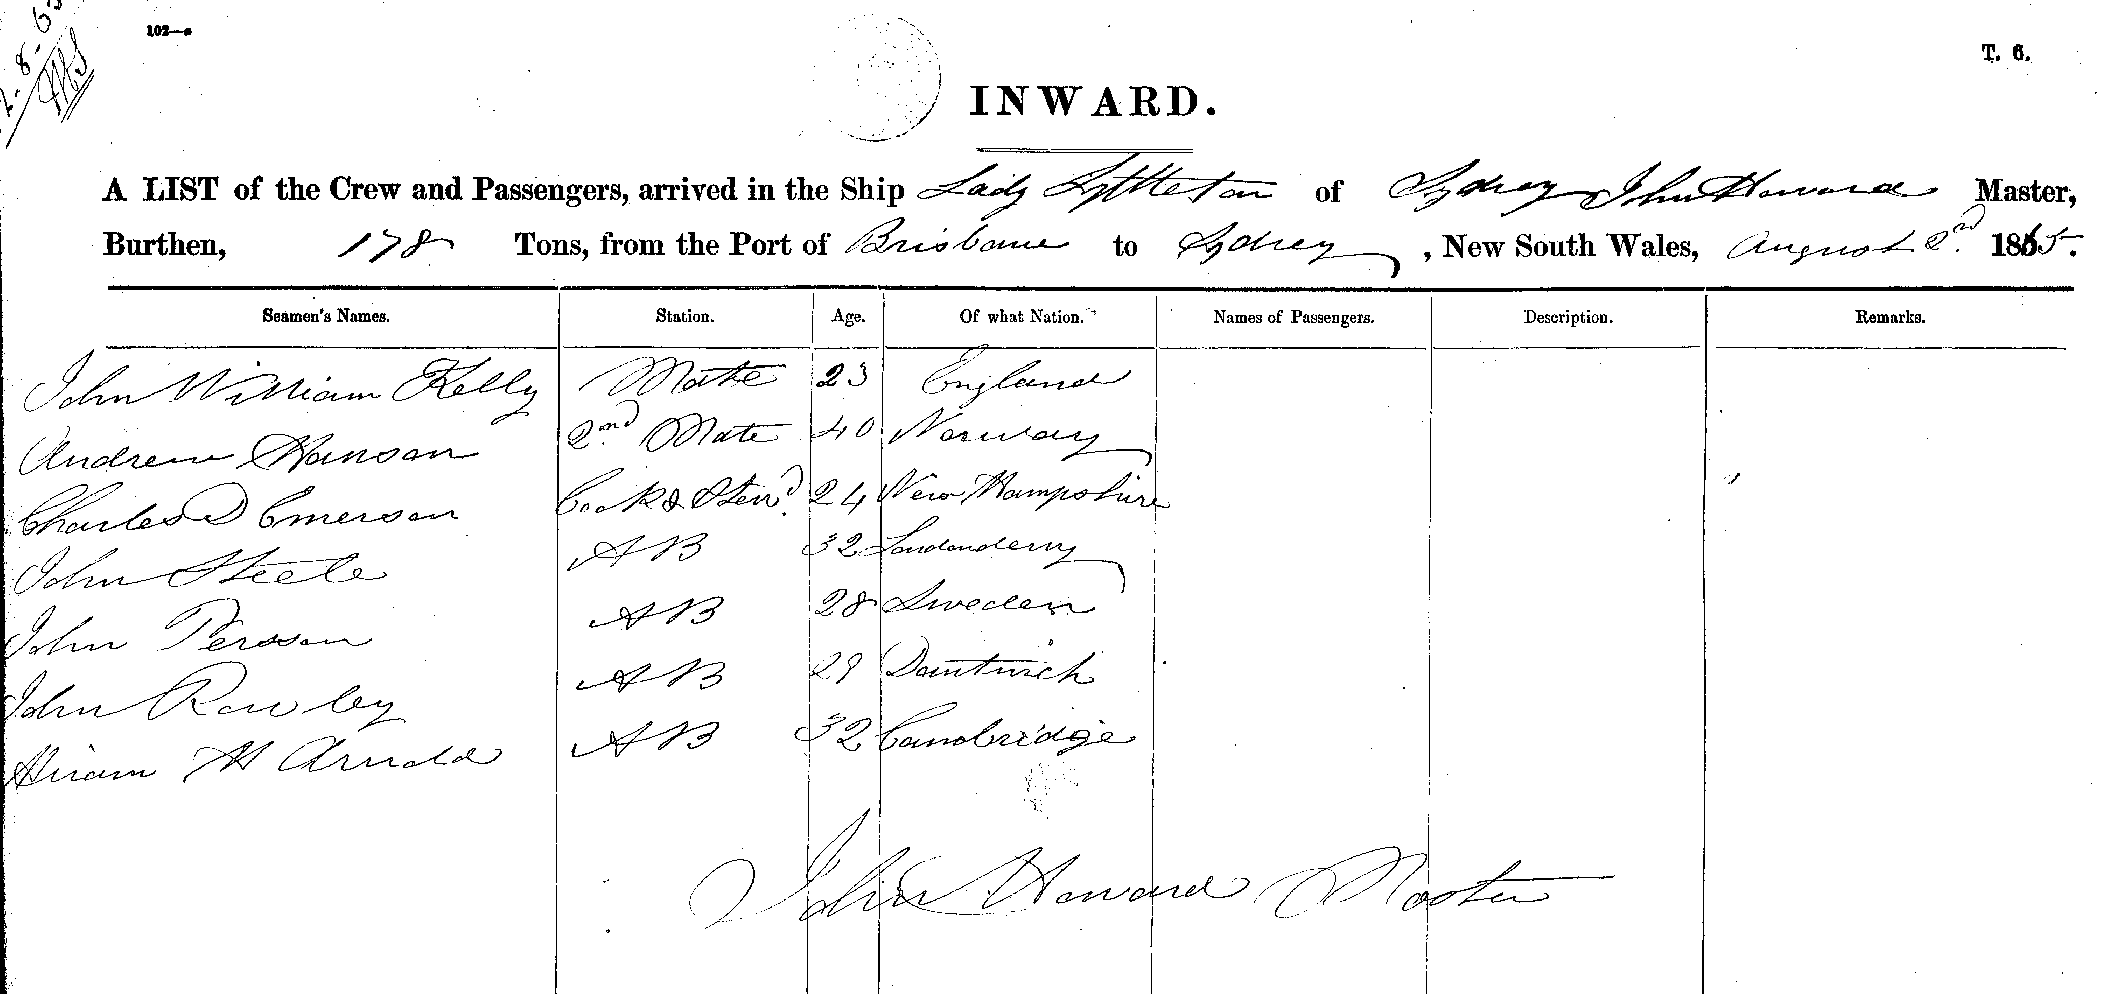 2-8-65
102—a
T. 6.
INWARD.
A LIST of the Crew and Passengers, arrived in the Ship Lady Lyttleton of Sydney John Howard Master,
Burthen, 178 Tons, from the Port of Brisbane to Sydney, New South Wales, August 2nd 1865.
Seamen's Names. Station. Age. Of what Nation. Names of Passengers. Description. Remarks.
John William Kelly Mate 23 England
Andrew Hanson 2nd Mate 40 Norway
Charles D Emerson Cook & Stewd. 24 New Hampshire
John Steele AB 32 Londonderry
John Persson AB 28 Sweden
John Rowley AB 29
Hiram H Arnold AB 32 Cambridge
John Howard Master